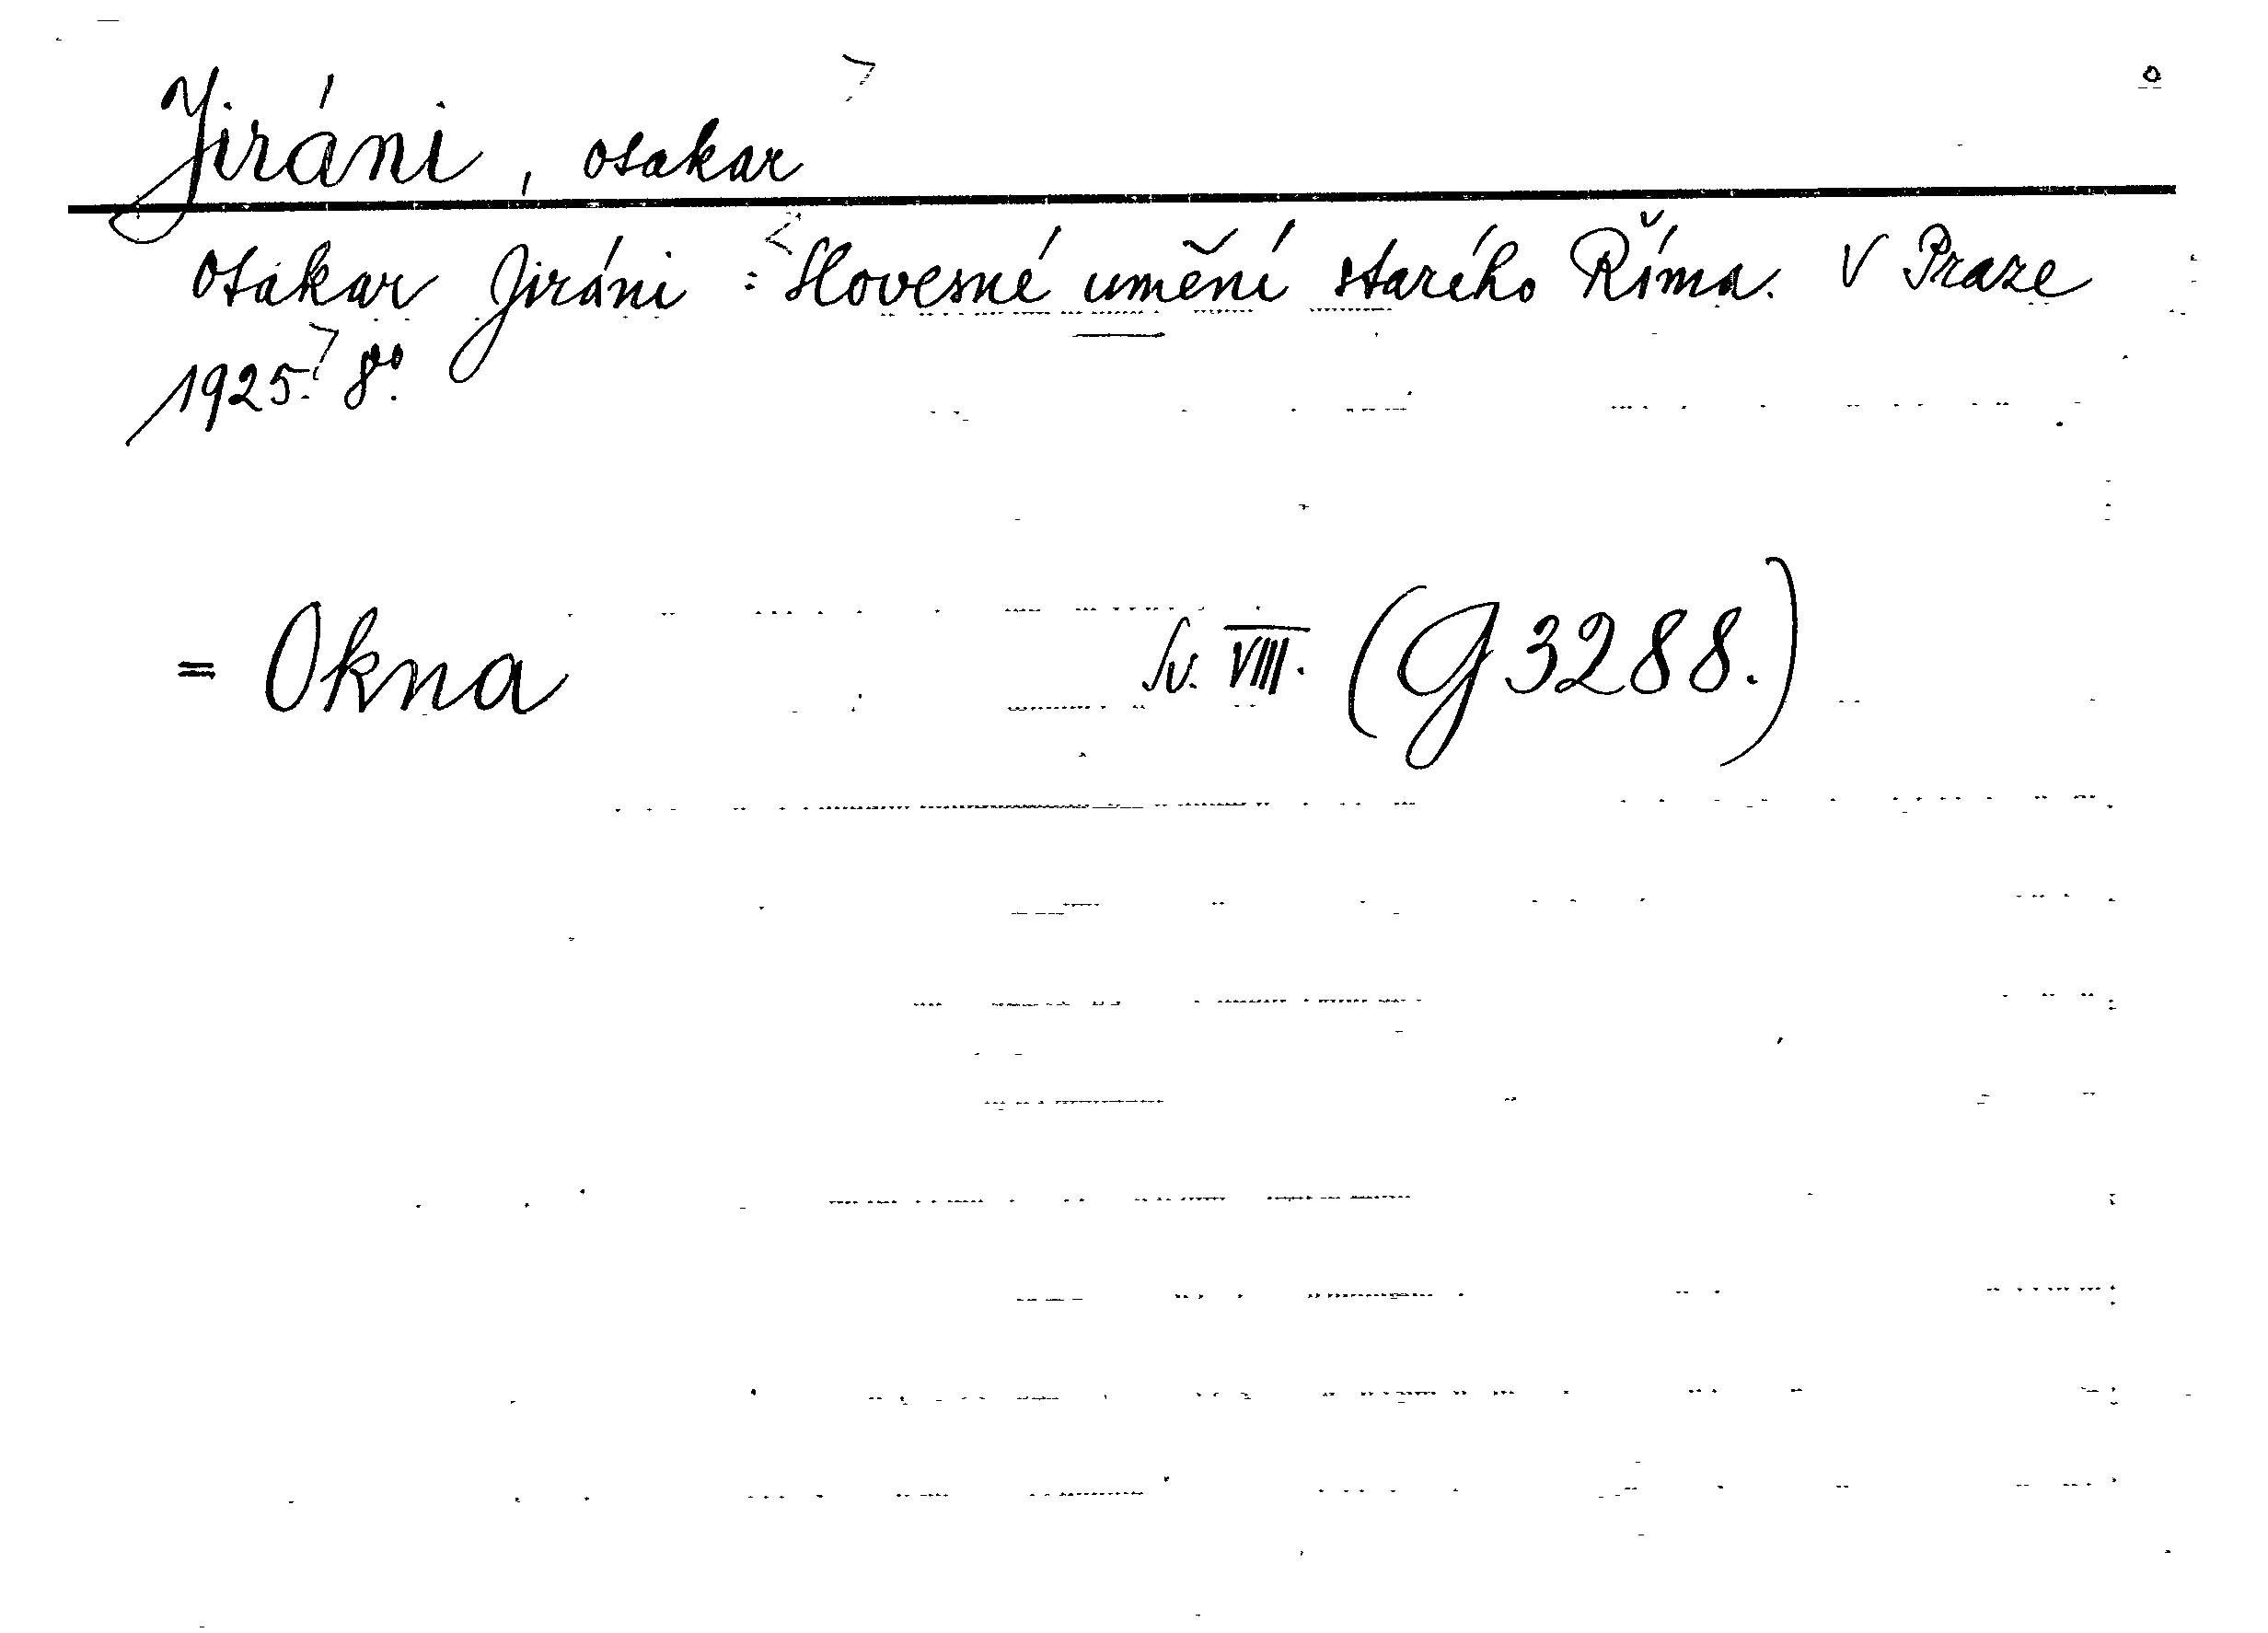 Jiráni, Otakar
Otakar Jiráni : Slovesné umění starého Říma. V Praze
1925. 8°.
= Okna Sv. VIII. (G 3288.)